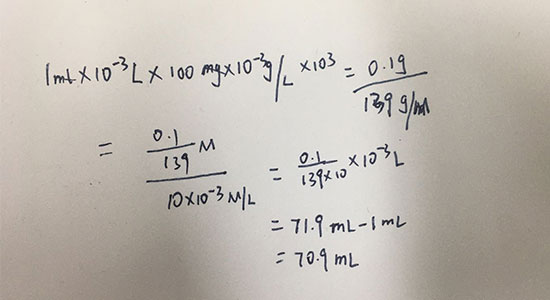 1mL×10⁻³L×100 mg×10⁻³g/L ×10³ = 0.1g/139 g/M
= (0.1/139 M)/(10×10⁻³ M/L) = 0.1/(139×10) ×10⁻³L
= 71.9 mL-1mL
= 70.9 mL